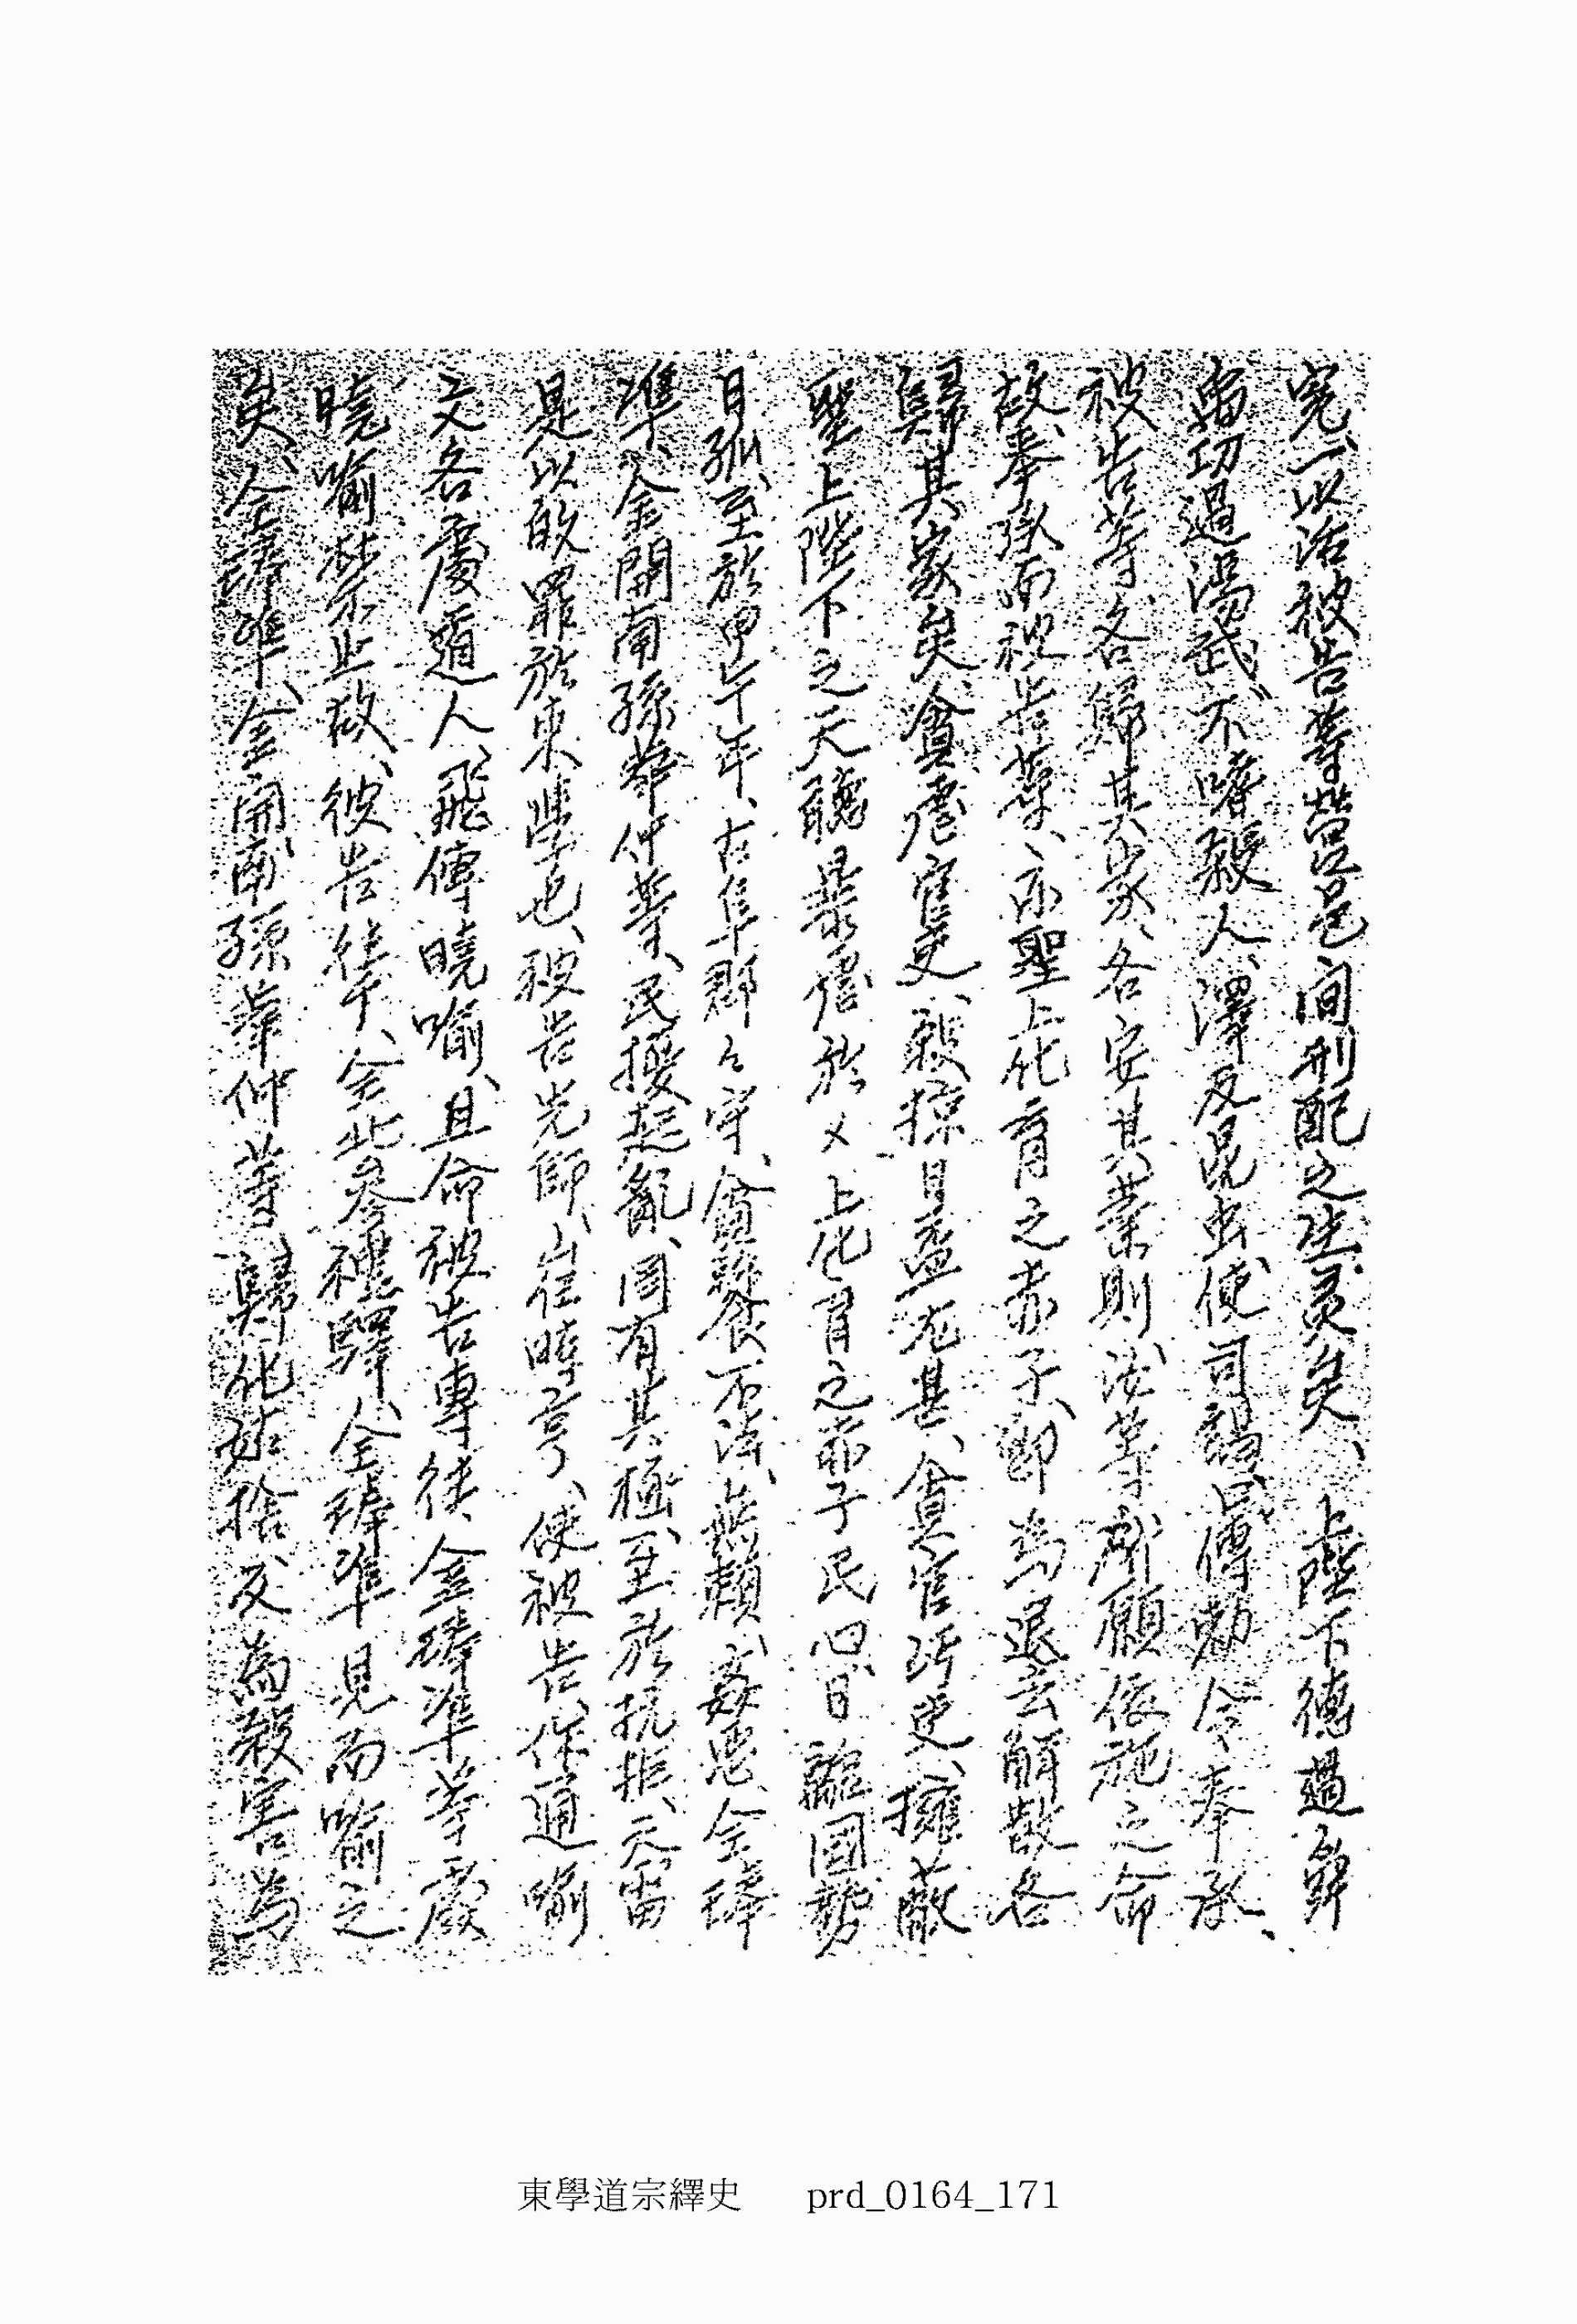 寃、一以活被告等營邑間刑配之生灵矣、 上陛下德過舜
禹功過湯武、不嗜殺人、澤及昆虫、使司謁、口傳勅令奉承、
被告等、各歸其家、各安其業則汝等所願依施之命
故、奉勅而被告等、亦聖上化育之赤子、卽為退去解散各
歸其家矣、貪虐官吏、殺掠日益尤甚、貪官汚吏、擁蔽
聖上陛下之天聽暴虐於 上化育之赤子民心日離國勢
日孤、至於甲午年、古阜郡々守、貪饕不法、無賴、姦惡、全琫
準、金開南孫華仲等、民擾起亂、固有其極、至於抗拒、天畓
是以敀罪於東學也、被告先師、崔時亨、使被告、作通喻
文各處道人、飛傳曉喻、且命被告專徃、全琫準等處
曉喻禁止故、彼告徃、全此參禮驛、全琫準見而喻之
矣、全琫準、金開南孫華仲等、歸化姑捨反為殺害為